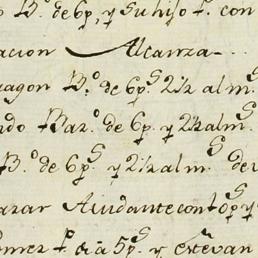 B.º de 6p.s, y su hijo f. con
acion Alcanza
agon B.º de 6p.s y 2 1/2 al m.s
ndo Baz.º de 6p.s y 2 1/2 al m.s
B.º de 6p.s y 2 1/2 al m.s de
azar Aiudante con 10 p.s y
omez f. cia 5p.s y estevan